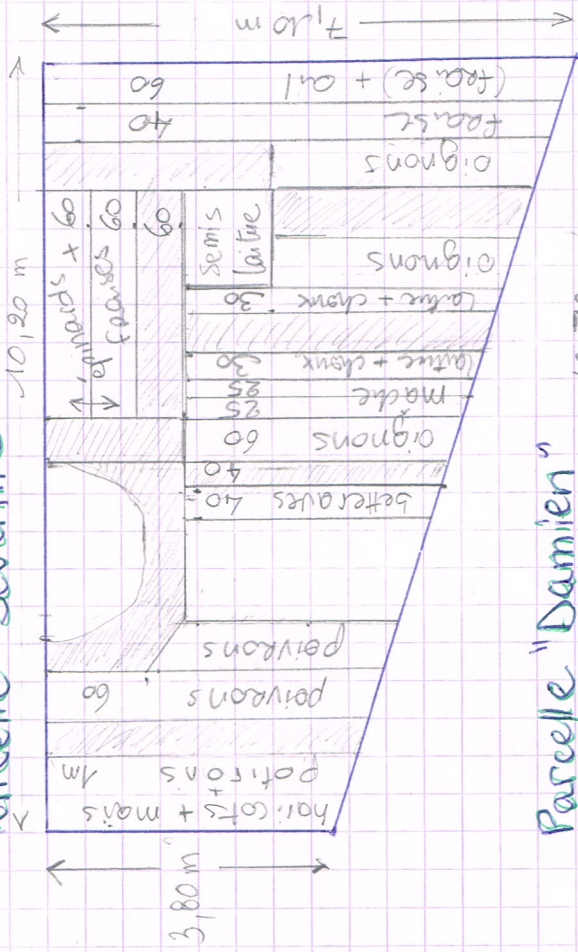 10,20 m
7,10 m
3,80 m
(fraise) + ail 60
fraise 40
oignons
épinards + 60
fraises 60
60
semis
laitue
oignons
laitue + choux 30
laitue + choux 30
mache 25
25
oignons 60
40
betteraves 40
poivrons
poivrons 60
potirons 1m
+
haricots + maïs
Parcelle "Damien"